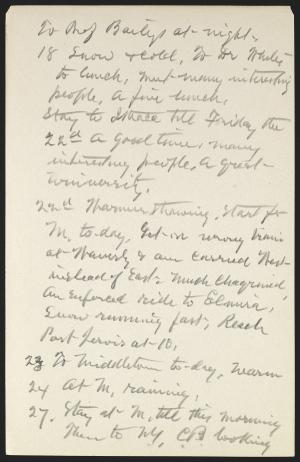 To Prof Baileys at night.
18 Snow & cold, To Dr White's
to lunch, meet many interesting
people, a fine lunch.
Stay to Ithaca till Friday the
22d A good time, many
interesting people, a great
university.
22d Warmer thawing. Start for
M. to-day, Get in wrong train
at Waverly & am carried West
instead of East; Much chagrined,
An enforced ride to Elmira,
Snow running fast; Reach
Port Jervis at 10,
23 To Middletown to-day, warm
24 At M, raining,
27. Stay at M, till this morning
Then to NY, C.B. looking